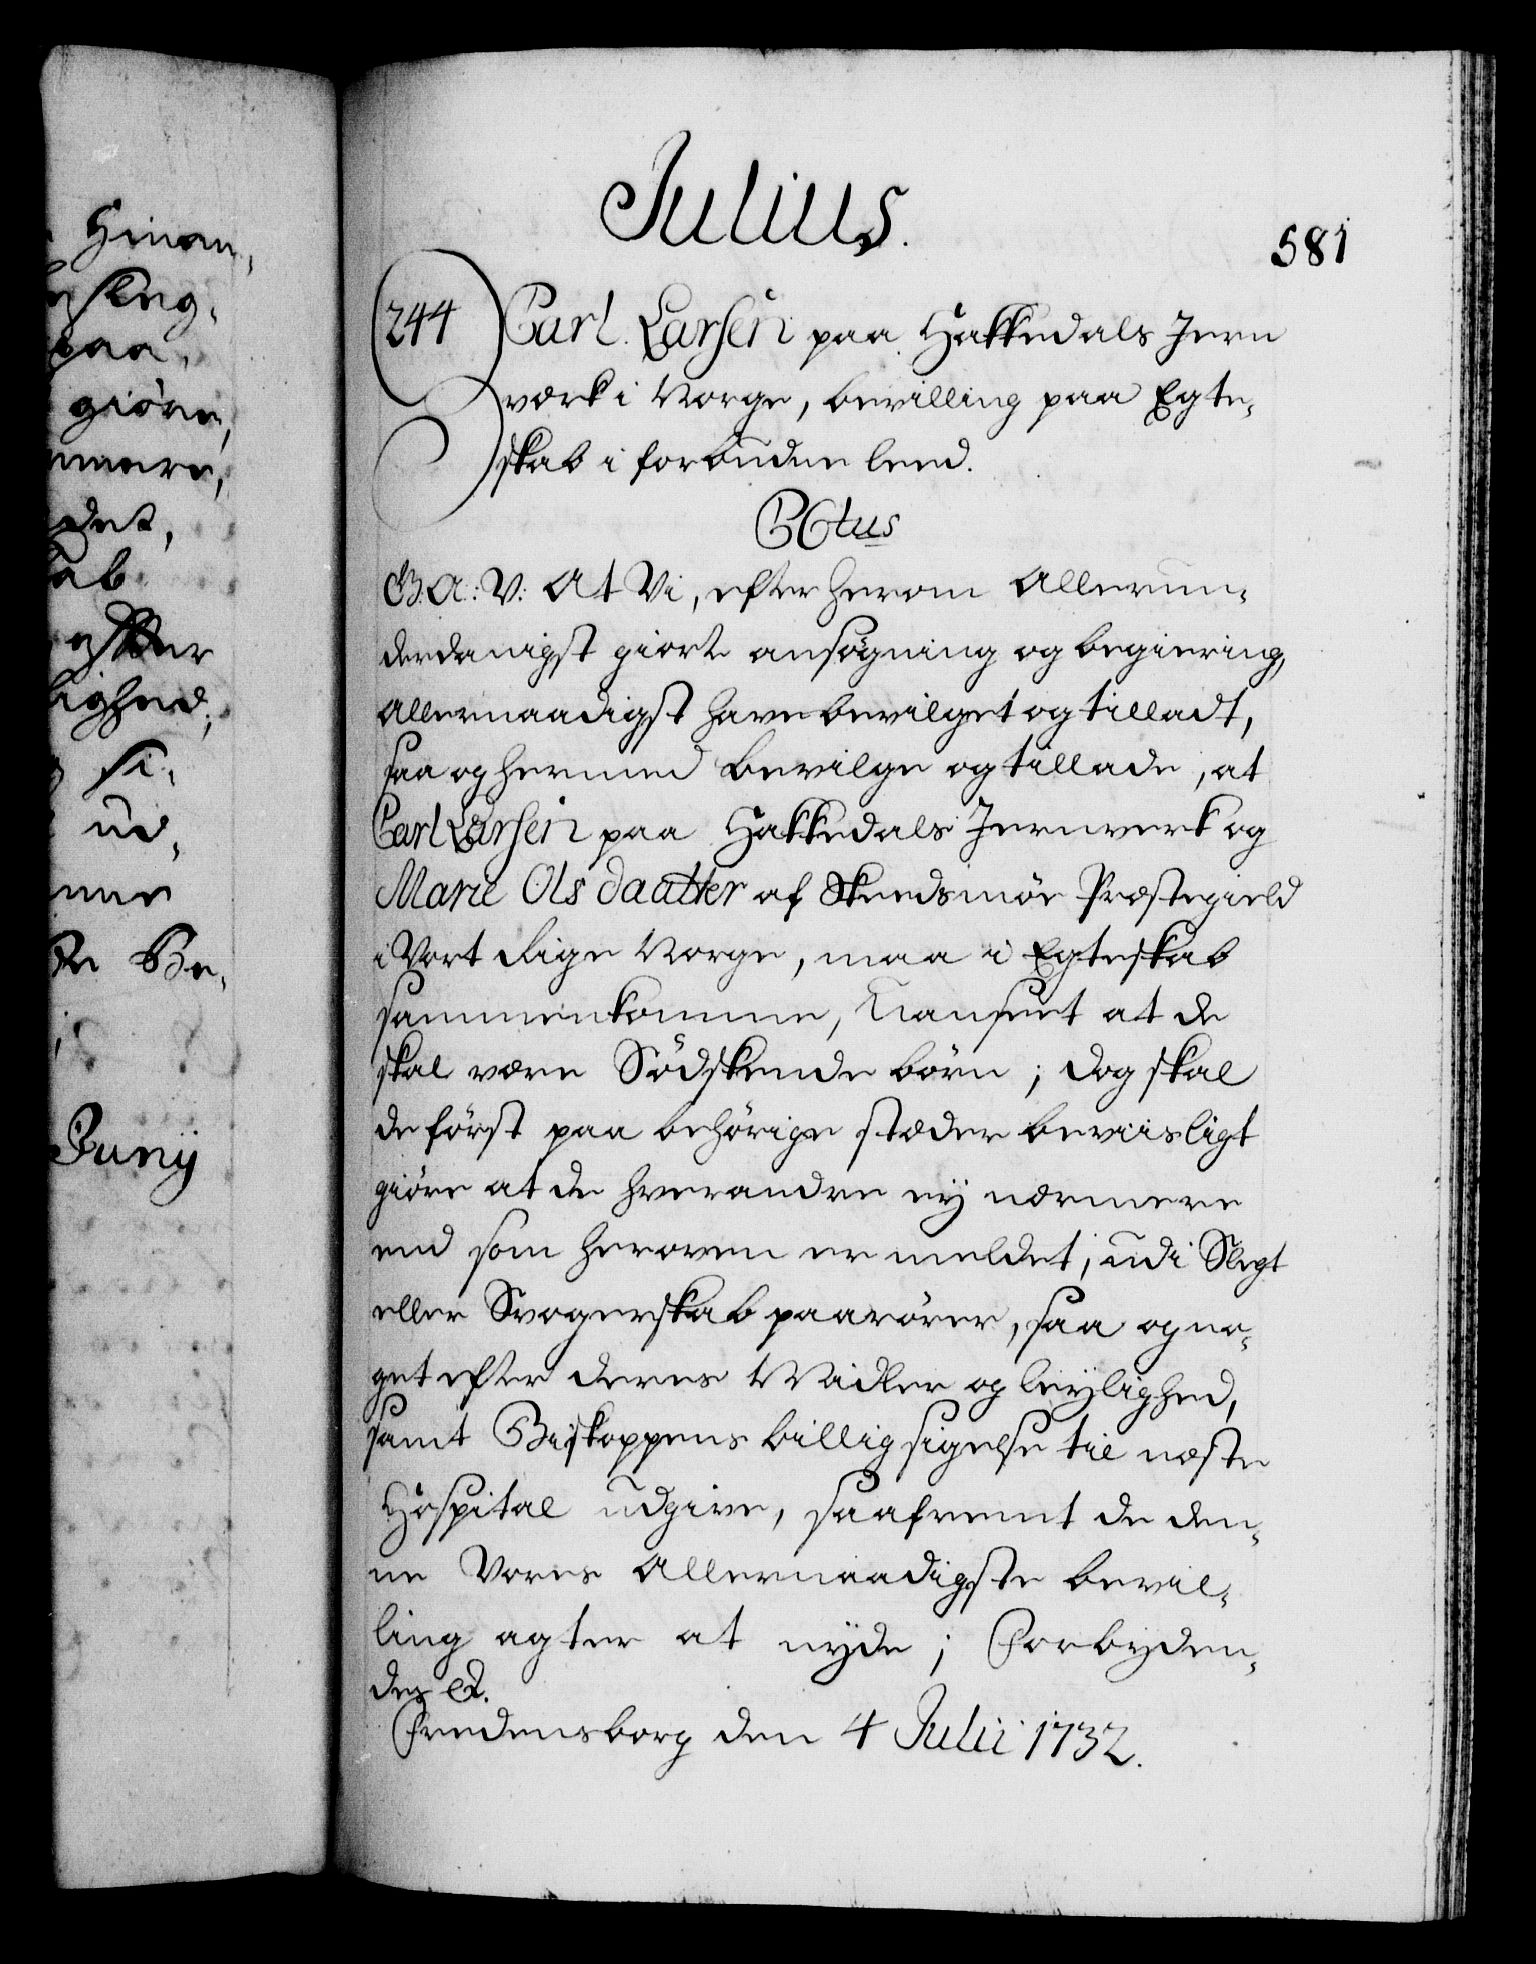 Julius.
581
244 Carl Larsen paa Hakkedals Jern
værk i Norge, bevilling paa Egte¬
skab i forbuden leed.
C6tus
G. A: V: At Vi, efter herom Allerun¬
derdanigst giort ansøgning og begiering,
Allernaadigst have bevilget og tilladt,
saa og hermed bevilge og tillade, at
Carl Larsen paa Hakkedals Jernverk og
Marie Ols daatter af Skeedsmöe Præstegield
i Vort Rige Norge, maa i Egteskab
sammenkomme, Uanseet at de
skal være Södskende börn; dog skal
de först paa behörige stæder beviisligt
giöre at de hverandre ey nærmere
end som heroven er meldet, udi Slegt
eller Svogerskab paarörer, saa og no¬
get efter deres Midler og leylighed,
samt Biskoppens billigsigelse til næste
Hospital udgive, saafremt de den¬
ne Vores Allernaadigste bevil¬
ling agter at nyde; Forbyden¬
des &.
Fredensborg den 4 Julii 1732.
Hinan¬
paa
giöre,
det,
ud¬
Be¬
Junij